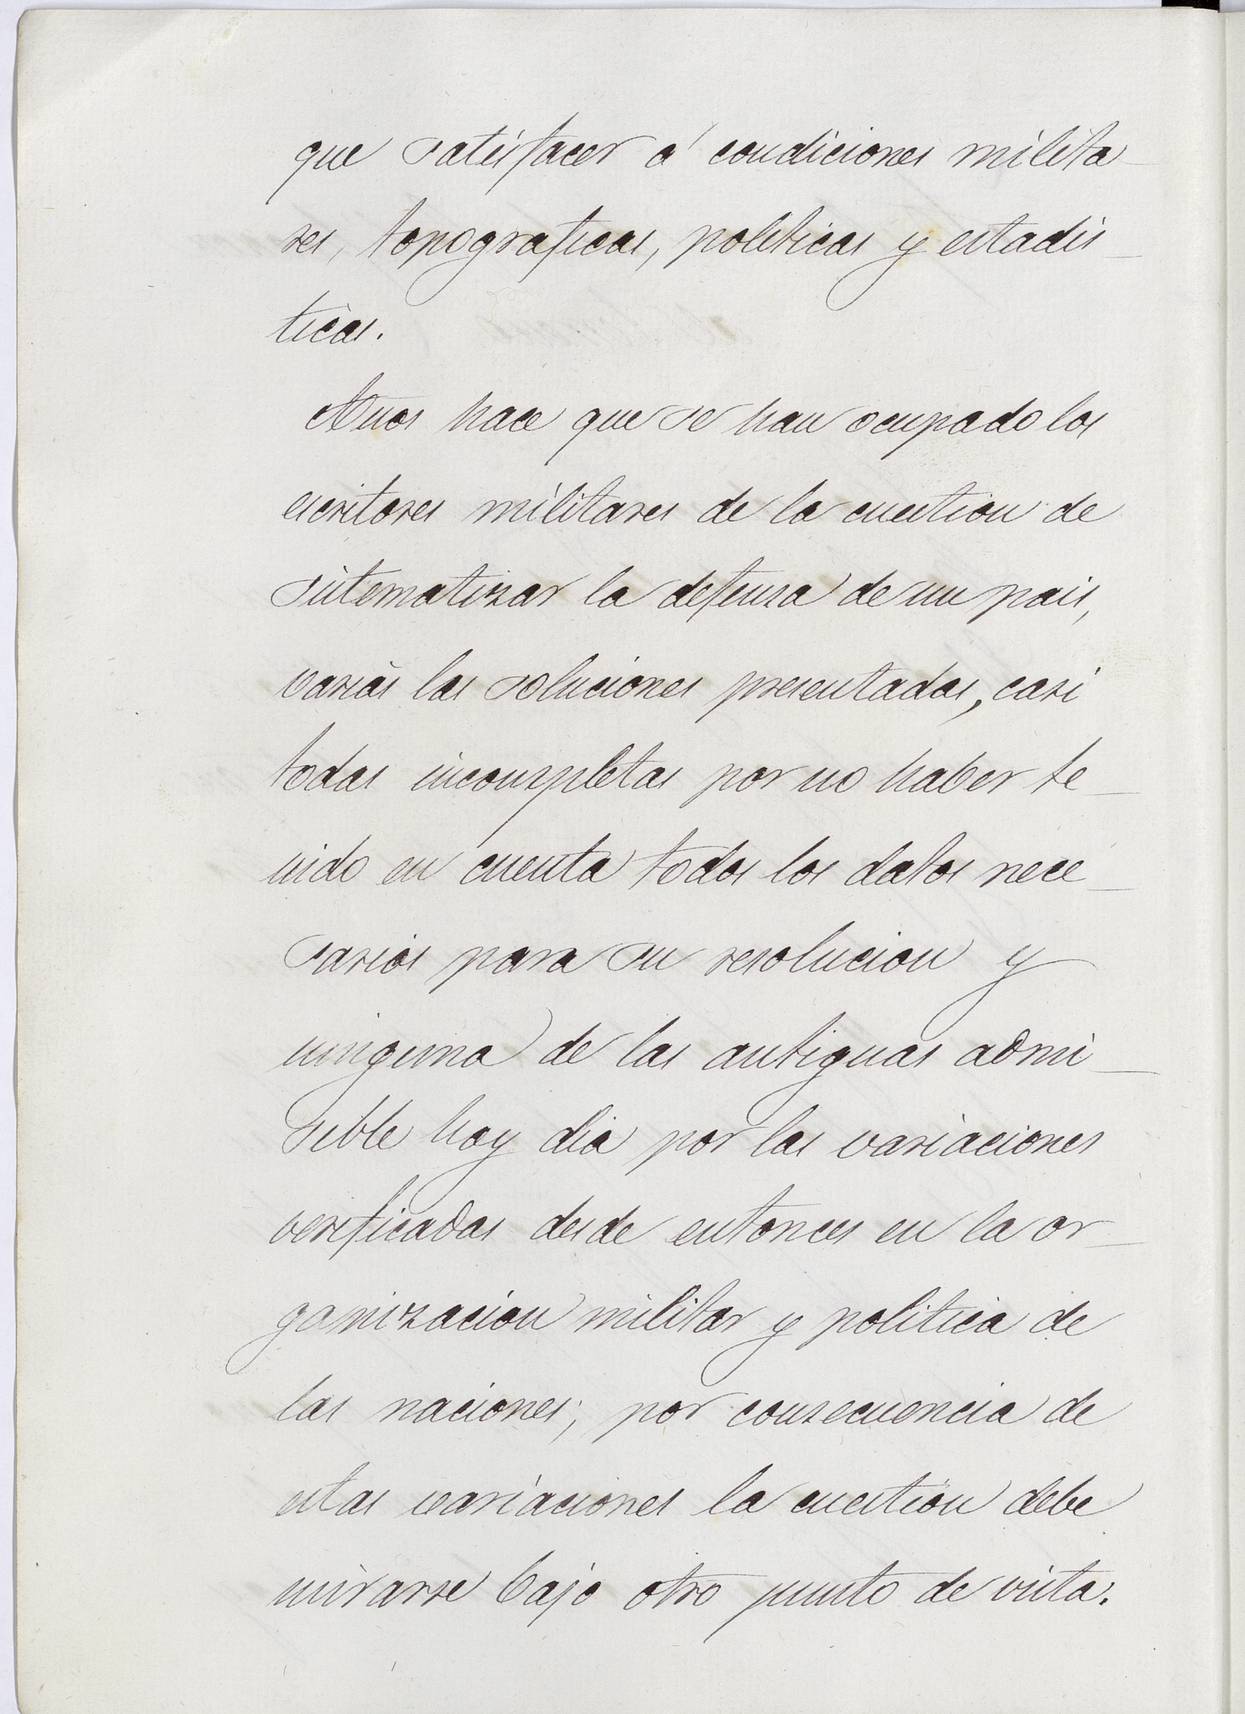 que satisfacer á condiciones milita-
res, topograficas, politicas y estadis-
ticas.
Años hace que se han ocupado los
escritores militares de la cuestion de
sistematizar la defensa de un pais,
varias las soluciones presentadas, casi
todas incompletas por no haber te-
nido en cuenta todos los datos nece-
sarios para su resolucion y
ninguna de las antiguas admi-
sible hoy dia por las variaciones
verificadas desde entonces en la or-
ganizacion militar y politica de
las naciones; por consecuencia de
estas variaciones la cuestion debe
mirarse bajo otro punto de vista.